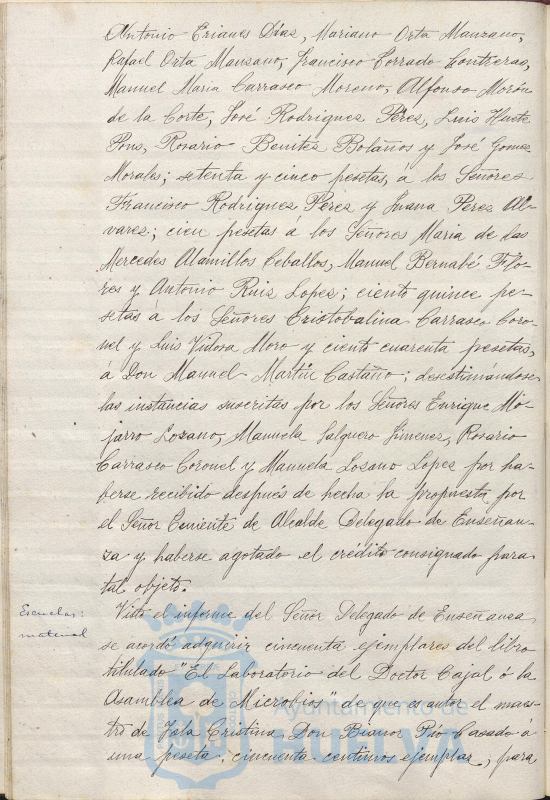 Antonio Erianes Días, Mariano Orta Manzano,
Rafael Orta Manzano, Francisco Forrado Contreras,
Manuel Maria Carrasco Moreno, Alfonso Morón
de la Corte, José Rodriguez Pérez, Luis Huete
Pons, Rosario Benitez Bolaños y José Gomez
Morales; setenta y cinco pesetas, a los Señores
Francisco Rodriguez Pérez y Juana Perez Al-
varez; cien pesetas á los Señores Maria de las
Mercedes Alamillos Ceballos, Manuel Bernabé Flo-
res y Antonio Ruiz Lopez; ciento quince pe-
setas á los Señores Cristobalina Carrasco Coro-
nel y Luis Vidosa Moro y ciento cuarenta pesetas,
á Don Manuel Martin Castaño; desestimándose
las instancias suscritas por los Señores Enrique Mo-
jarro Lozano, Manuela Salguero Jimenez, Rosario
Carrasco Coronel y Manuela Lozano Lopez por ha-
berse recibido después de hecha la propuesta por
el Señor Teniente de Alcalde Delegado de Enseñan-
za y haberse agotado el crédito consignado para
tal objeto.
Escuelas:
material
Visto el informe del Señor Delegado de Enseñanza
se acordó adquirir cincuenta ejemplares del libro
titulado "El Laboratorio del Doctor Cajal ó la
Asamblea de Microbios" de que es autor el maes-
tro de Isla Cristina, Don Bianor Pío Casado á
una peseta, cincuenta centimos ejemplar, para
Ayuntamiento de
HUELVA